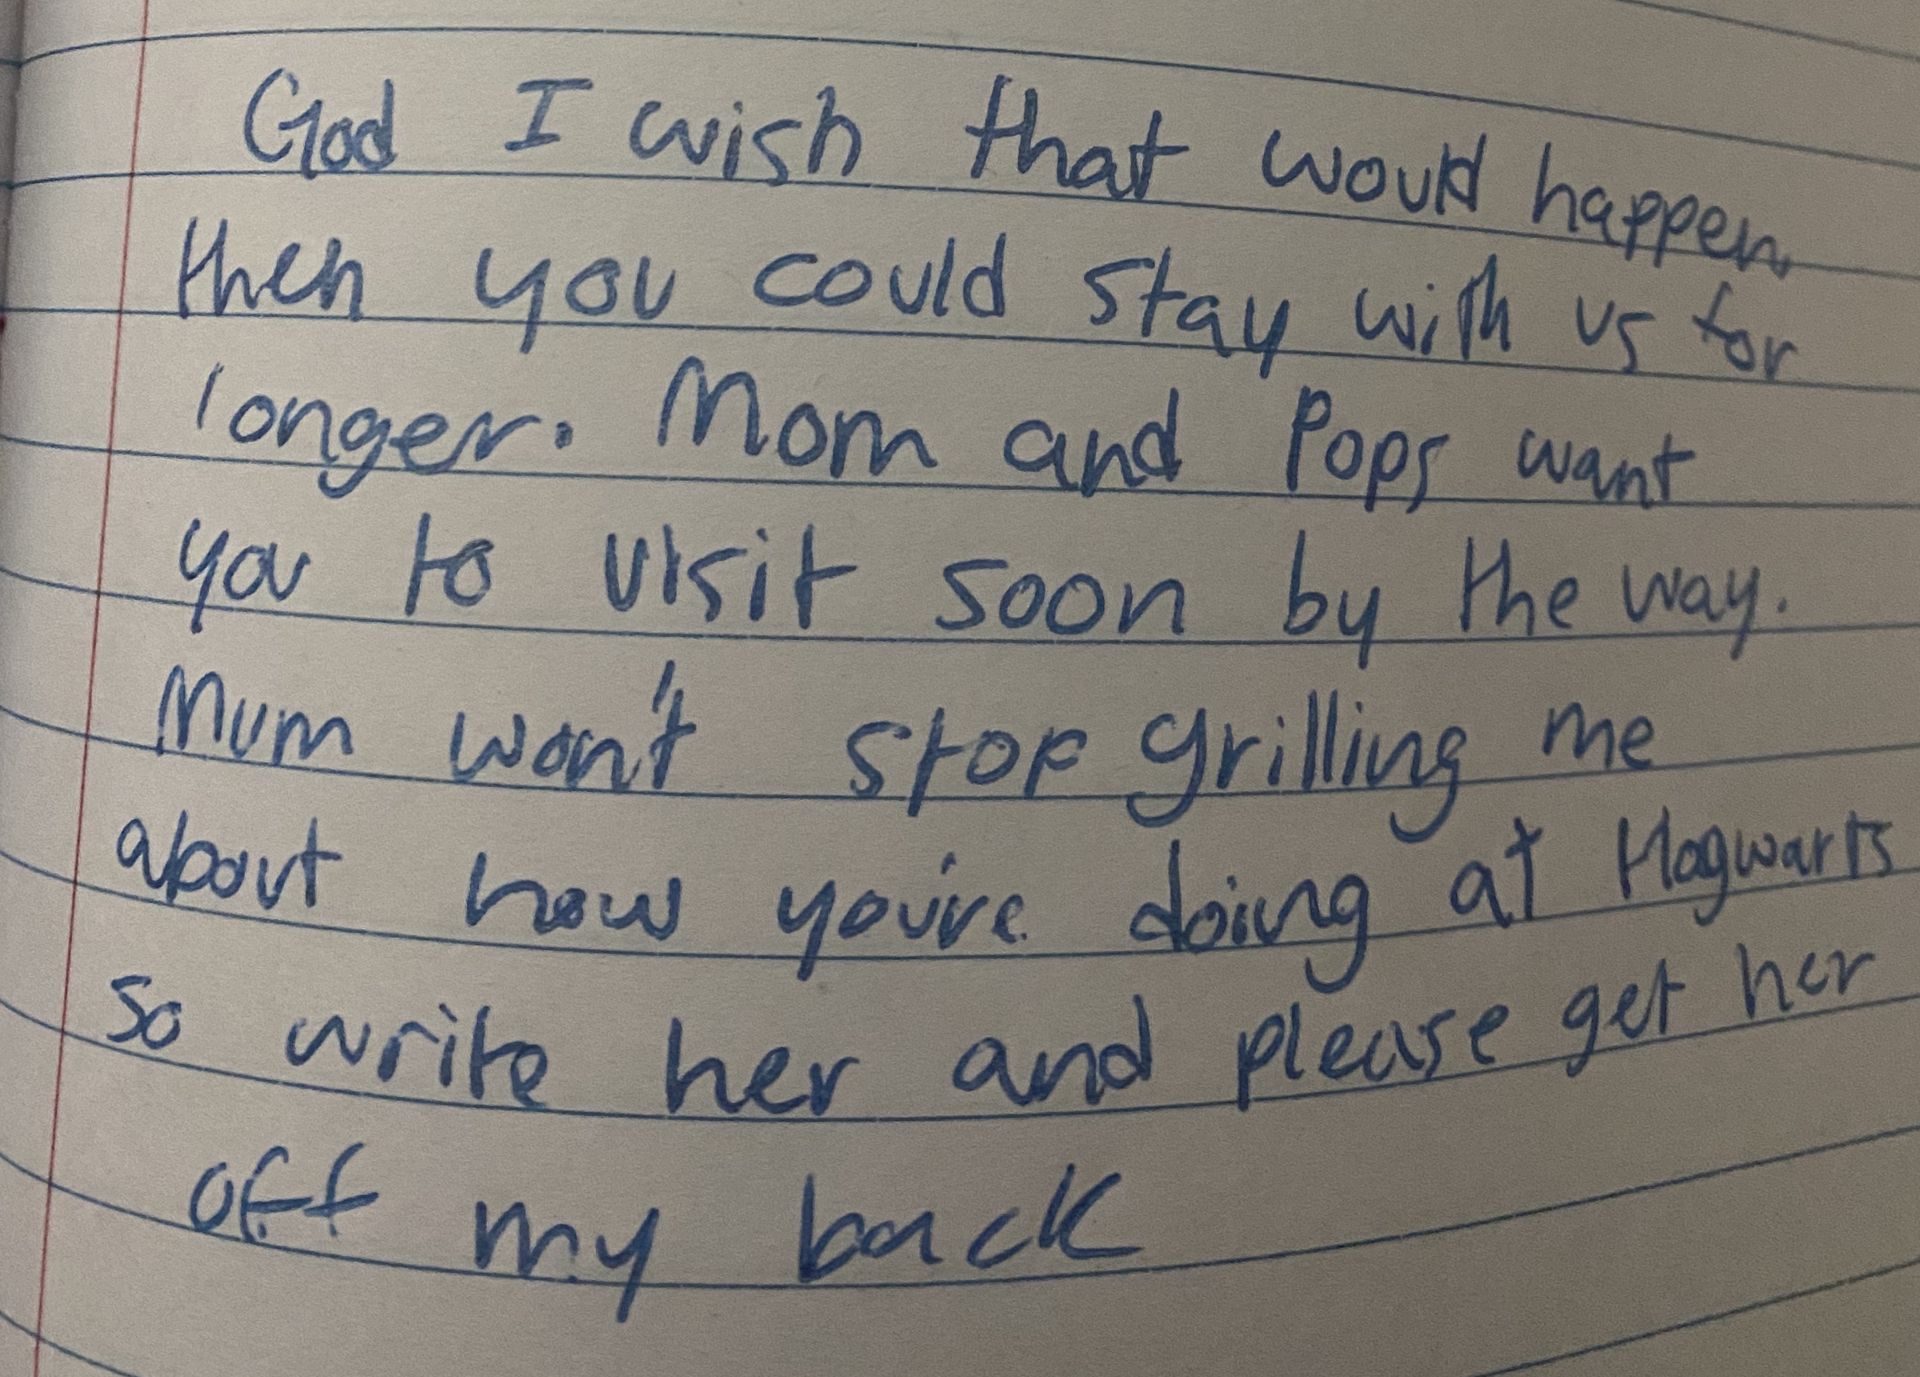 God I wish that would happen
then you could stay with us for
longer. Mom and Pops want
you to visit soon by the way.
Mum won't stop grilling me
about how you're doing at Hogwarts
so write her and please get her
off my back